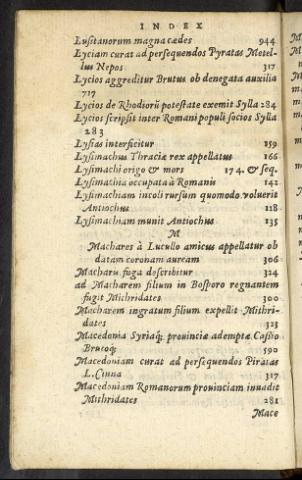 INDEX
Lusitanorum magna cædes 944
Lyciam curat ad persequendos Pyratas Metel-
lus Nepos 317
Lycios aggreditur Brutus ob denegata auxilia
717
Lycios de Rhodiorũ potestate exemit Sylla 284
Lycios scripsit inter Romani populi socios Sylla
283
Lysias interficitur 159
Lysimachus Thraciæ rex appellatus 166
Lysimachi origo & mors 174. & seq.
Lysimachia occupata à Romanis 142
Lysimachiam incoli rursum quomodo voluerit
Antiochus 128
Lysimachiam munit Antiochus 135
M
Machares à Lucullo amicus appellatur ob
datam coronam auream 306
Macharis fuga describitur 324
ad Macharem filium in Bosporo regnantem
fugit Mithridates 300
Macharem ingratum filium expellit Mithri-
dates 323
Macedonia Syriaq; prouinciæ ademptæ Cassio
Brutoq; 590
Macedoniam curat ad persequendos Piratas
L. Cinna 317
Macedoniam Romanorum prouinciam inuadit
Mithridates 281
Mace